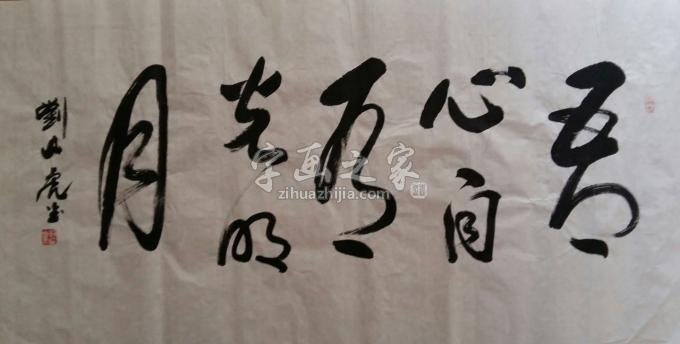 吾
心自
有
光明
月
劉山虎书
字画之家
zihuazhijia.com